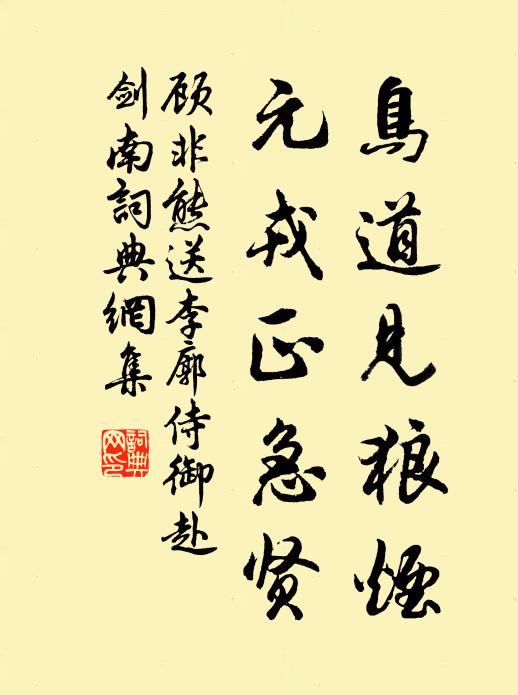 鳥道見狼煙
元戎正急贤
顾非熊送李廓侍御赴
劍南詞典網集
詞典网印